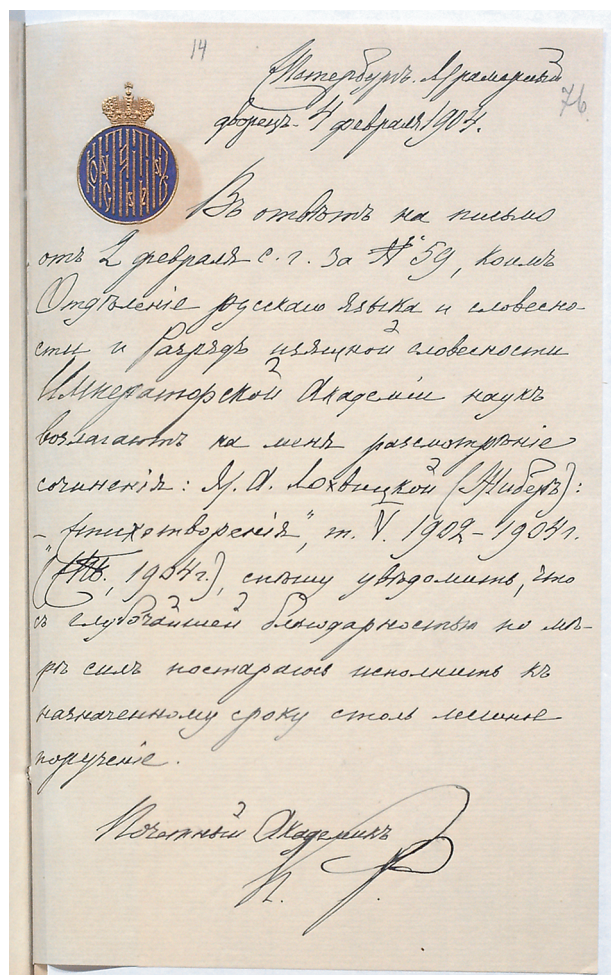 14
76.
Петербургъ. Мраморный
дворецъ. 4 февраля 1904.
Въ отвѣтъ на письмо
отъ 2 февраля с. г. за № 59, коимъ
Отдѣленіе русскаго языка и словесно-
сти и Разрядъ изящной словесности
Императорской Академіи наукъ
возлагаютъ на меня разсмотрѣніе
сочиненія: М. А. Лохвицкой (Жиберъ):
– „Стихотворенія", т. V. 1902–1904 г.
(СПб., 1904 г.), спѣшу увѣдомить, что
съ глубочайшей благодарностью по мѣ-
рѣ силъ постараюсь исполнить къ
назначенному сроку столь лестное
порученіе.
Почетный Академикъ
К. Р.